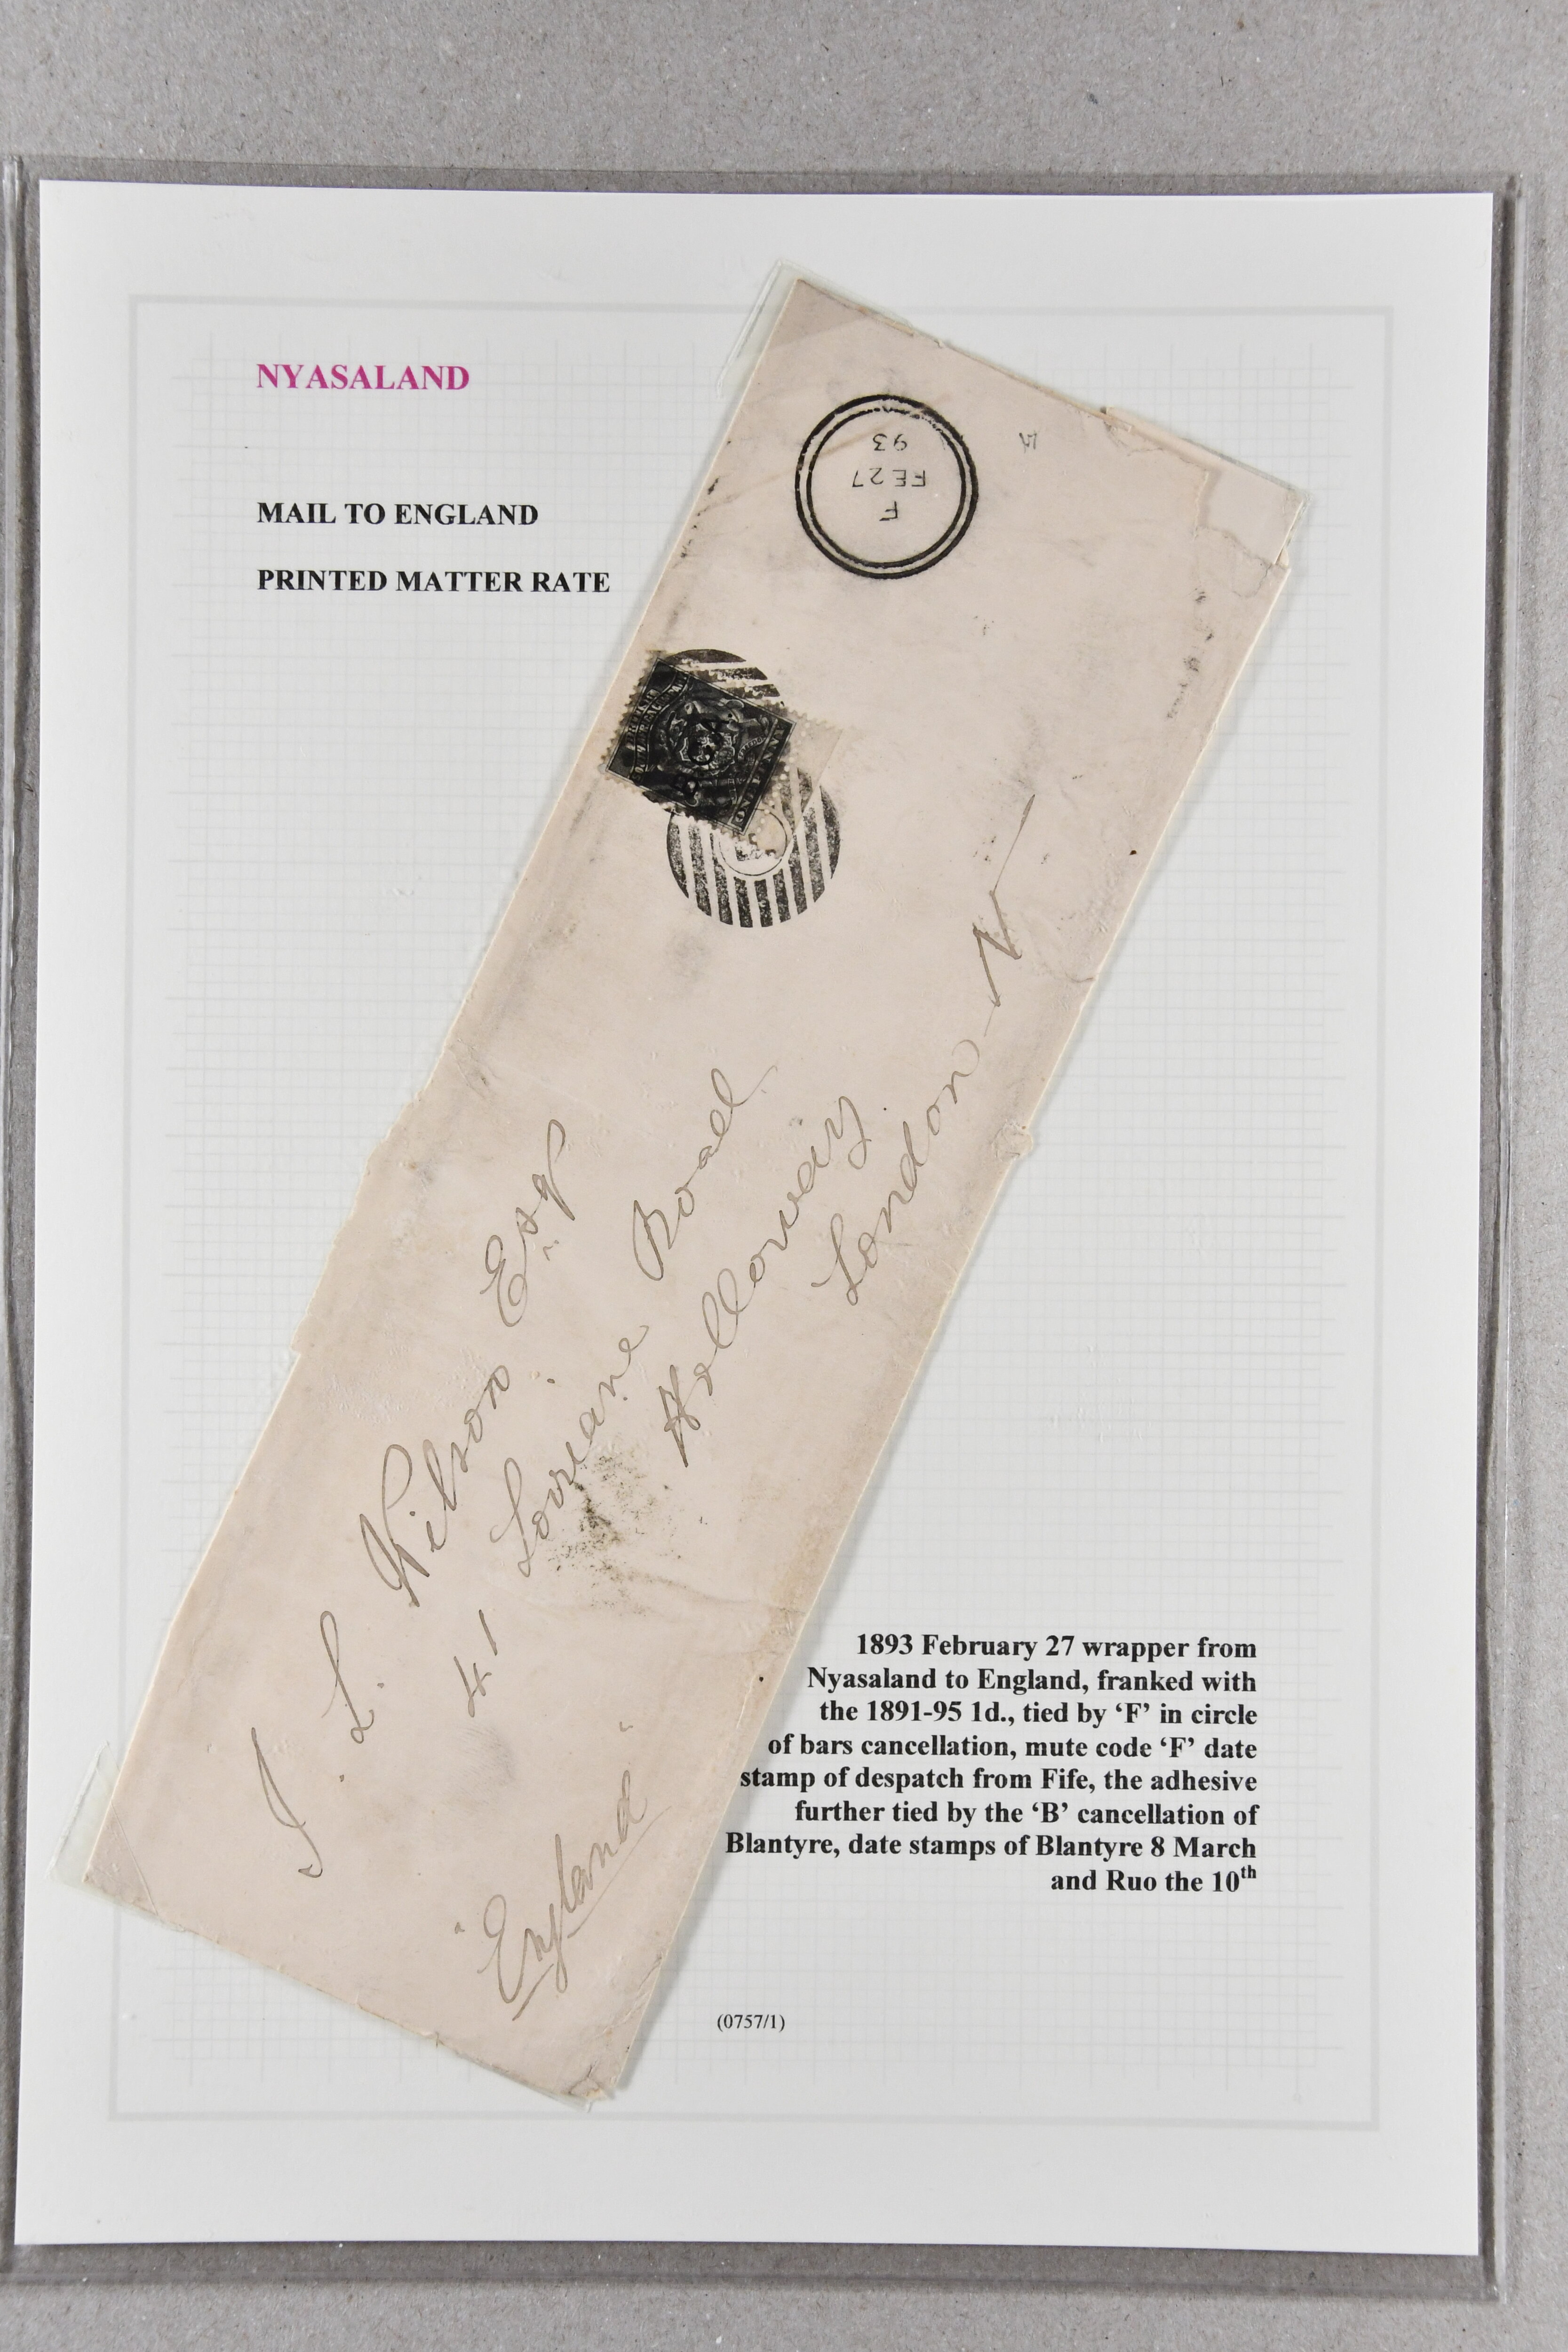 NYASALAND
MAIL TO ENGLAND
PRINTED MATTER RATE
F
FE 27
93
ONE PENNY
I. L. Wilson Esqr
41 Loraine Road
Holloway
London N
"England"
1893 February 27 wrapper from
Nyasaland to England, franked with
the 1891-95 1d., tied by ‘F’ in circle
of bars cancellation, mute code ‘F’ date
stamp of despatch from Fife, the adhesive
further tied by the ‘B’ cancellation of
Blantyre, date stamps of Blantyre 8 March
and Ruo the 10th
(0757/1)